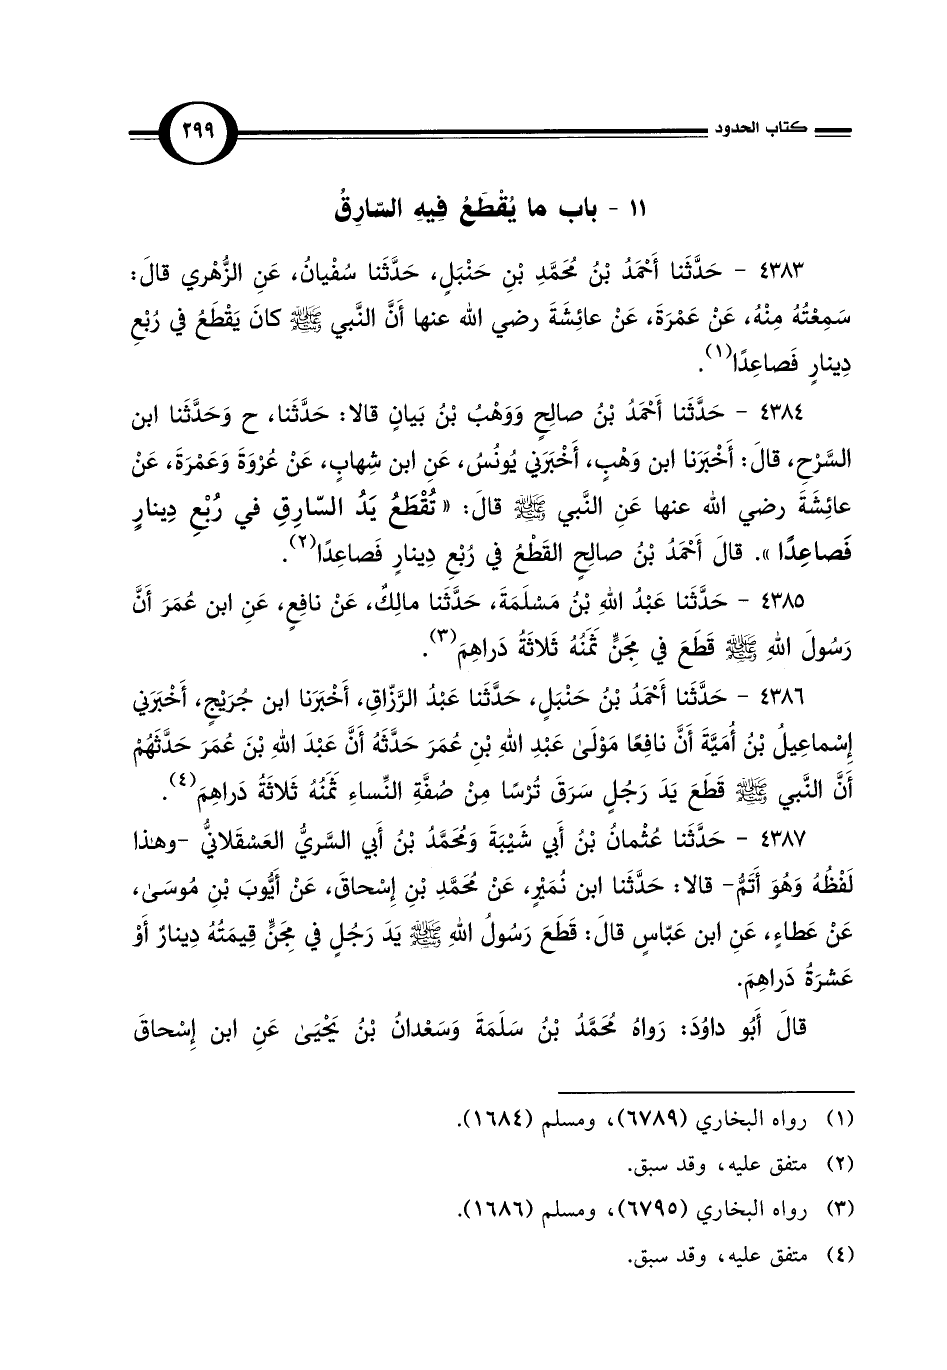 كتاب الحدود
٢٩٩
١١ - باب ما يُقْطَعُ فِيهِ السّارِقُ
٤٣٨٣ - حَدَّثَنا أَحْمَدُ بْنُ مُحَمَّدِ بْنِ حَنْبَلٍ، حَدَّثَنا سُفْيانُ، عَنِ الزُّهْري قالَ:
سَمِعْتُهُ مِنْهُ، عَنْ عَمْرَةَ، عَنْ عائِشَةَ رضي الله عنها أَنَّ النَّبي ﷺ كانَ يَقْطَعُ في رُبْعِ
دِينارٍ فَصاعِدًا(١).
٤٣٨٤ - حَدَّثَنا أَحْمَدُ بْنُ صالِحٍ وَوَهْبُ بْنُ بَيانٍ قالا: حَدَّثَنا، ح وَحَدَّثَنا ابن
السَّرْحِ، قالَ: أَخْبَرَنا ابن وَهْبٍ، أَخْبَرَني يُونُسُ، عَنِ ابن شِهابٍ، عَنْ عُرْوَةَ وَعَمْرَةَ، عَنْ
عائِشَةَ رضي الله عنها عَنِ النَّبي ﷺ قالَ: « تُقْطَعُ يَدُ السّارِقِ في رُبْعِ دِينارٍ
فَصاعِدًا ». قالَ أَحْمَدُ بْنُ صالِحٍ القَطْعُ في رُبْعِ دِينارٍ فَصاعِدًا(٢).
٤٣٨٥ - حَدَّثَنا عَبْدُ اللهِ بْنُ مَسْلَمَةَ، حَدَّثَنا مالِكٌ، عَنْ نافِعٍ، عَنِ ابن عُمَرَ أَنَّ
رَسُولَ اللهِ ﷺ قَطَعَ في مِجَنٍّ ثَمَنُهُ ثَلاثَةُ دَراهِمَ(٣).
٤٣٨٦ - حَدَّثَنا أَحْمَدُ بْنُ حَنْبَلٍ، حَدَّثَنا عَبْدُ الرَّزّاقِ، أَخْبَرَنا ابن جُرَيْجٍ، أَخْبَرَني
إِسْماعِيلُ بْنُ أُمَيَّةَ أَنَّ نافِعًا مَوْلَىٰ عَبْدِ اللهِ بْنِ عُمَرَ حَدَّثَهُ أَنَّ عَبْدَ اللهِ بْنَ عُمَرَ حَدَّثَهُمْ
أَنَّ النَّبي ﷺ قَطَعَ يَدَ رَجُلٍ سَرَقَ تُرْسًا مِنْ صُفَّةِ النِّساءِ ثَمَنُهُ ثَلاثَةُ دَراهِمَ(٤).
٤٣٨٧ - حَدَّثَنا عُثْمانُ بْنُ أَبي شَيْبَةَ وَمُحَمَّدُ بْنُ أَبي السَّريُّ العَسْقَلانيُّ -وهـٰذا
لَفْظُهُ وَهُوَ أَتَمُّ- قالا: حَدَّثَنا ابن نُمَيْرٍ، عَنْ مُحَمَّدِ بْنِ إِسْحاقَ، عَنْ أَيُّوبَ بْنِ مُوسَىٰ،
عَنْ عَطاءٍ، عَنِ ابن عَبّاسٍ قالَ: قَطَعَ رَسُولُ اللهِ ﷺ يَدَ رَجُلٍ في مِجَنٍّ قِيمَتُهُ دِينارٌ أَوْ
عَشرَةُ دَراهِمَ.
قالَ أَبُو داوُدَ: رَواهُ مُحَمَّدُ بْنُ سَلَمَةَ وَسَعْدانُ بْنُ يَحْيَىٰ عَنِ ابن إِسْحاقَ
(١) رواه البخاري (٦٧٨٩)، ومسلم (١٦٨٤).
(٢) متفق عليه، وقد سبق.
(٣) رواه البخاري (٦٧٩٥)، ومسلم (١٦٨٦).
(٤) متفق عليه، وقد سبق.